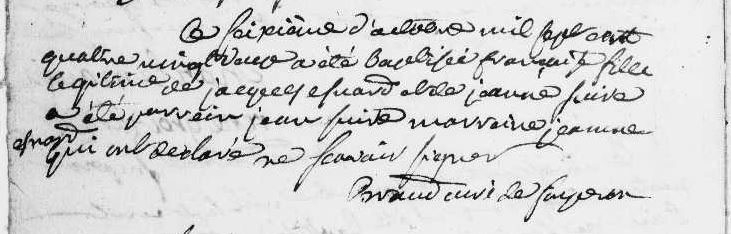 Le seixième d'octobre mil sept cent
quatre vingt douze a été baptisée françoise fille
legitime de jacques esnard et de jeanne suire
a été parrain jean suire marraine jeanne
esnard qui ont declaré ne scavoir signer
curé de